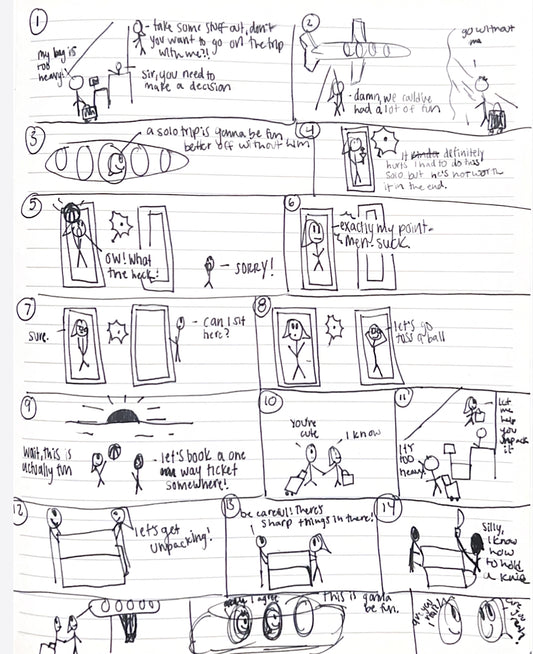 1
my bag is
too
heavy!
- take some stuff out, don't
you want to go on the trip
with me?!
Sir, you need to
make a decision
2
go without
me
- damn, we could've
had a lot of fun
3
a solo trip is gonna be fun
better off without him
4
It definitely
hurts I had to do this
solo but he's not worth
it in the end.
5
OW! What
the heck!
- SORRY!
6
- exactly my point-
men suck.
7
sure.
- can I sit
here?
8
let's go
toss a ball
9
wait, this is
actually fun
- let's book a one
way ticket
somewhere!
10
You're
cute
I know
11
It's
too
heavy
Let
me
help
you
unpack
it
12
let's get
unpacking!
13
be careful! There's
sharp things in there!
14
Silly,
I know
how
to hold
a knife
I agree
This is gonna
be fun.